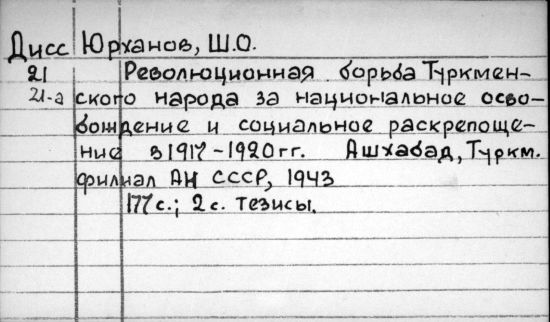 Дисс Юрханов, Ш.О.
21 Революционная борьба Туркмен-
21-а ского народа за национальное осво-
бождение и социальное раскрепоще-
ние в 1917-1920 гг. Ашхабад, Туркм.
филиал АН СССР, 1943
177 с.; 2 с. тезисы.